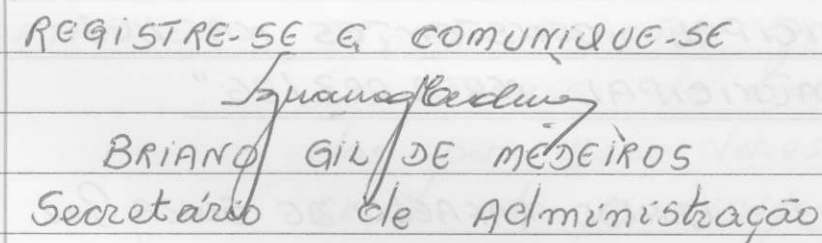 REGISTRE-SE E COMUNIQUE-SE
BRIANO GIL DE MEDEIROS
Secretário de Administração